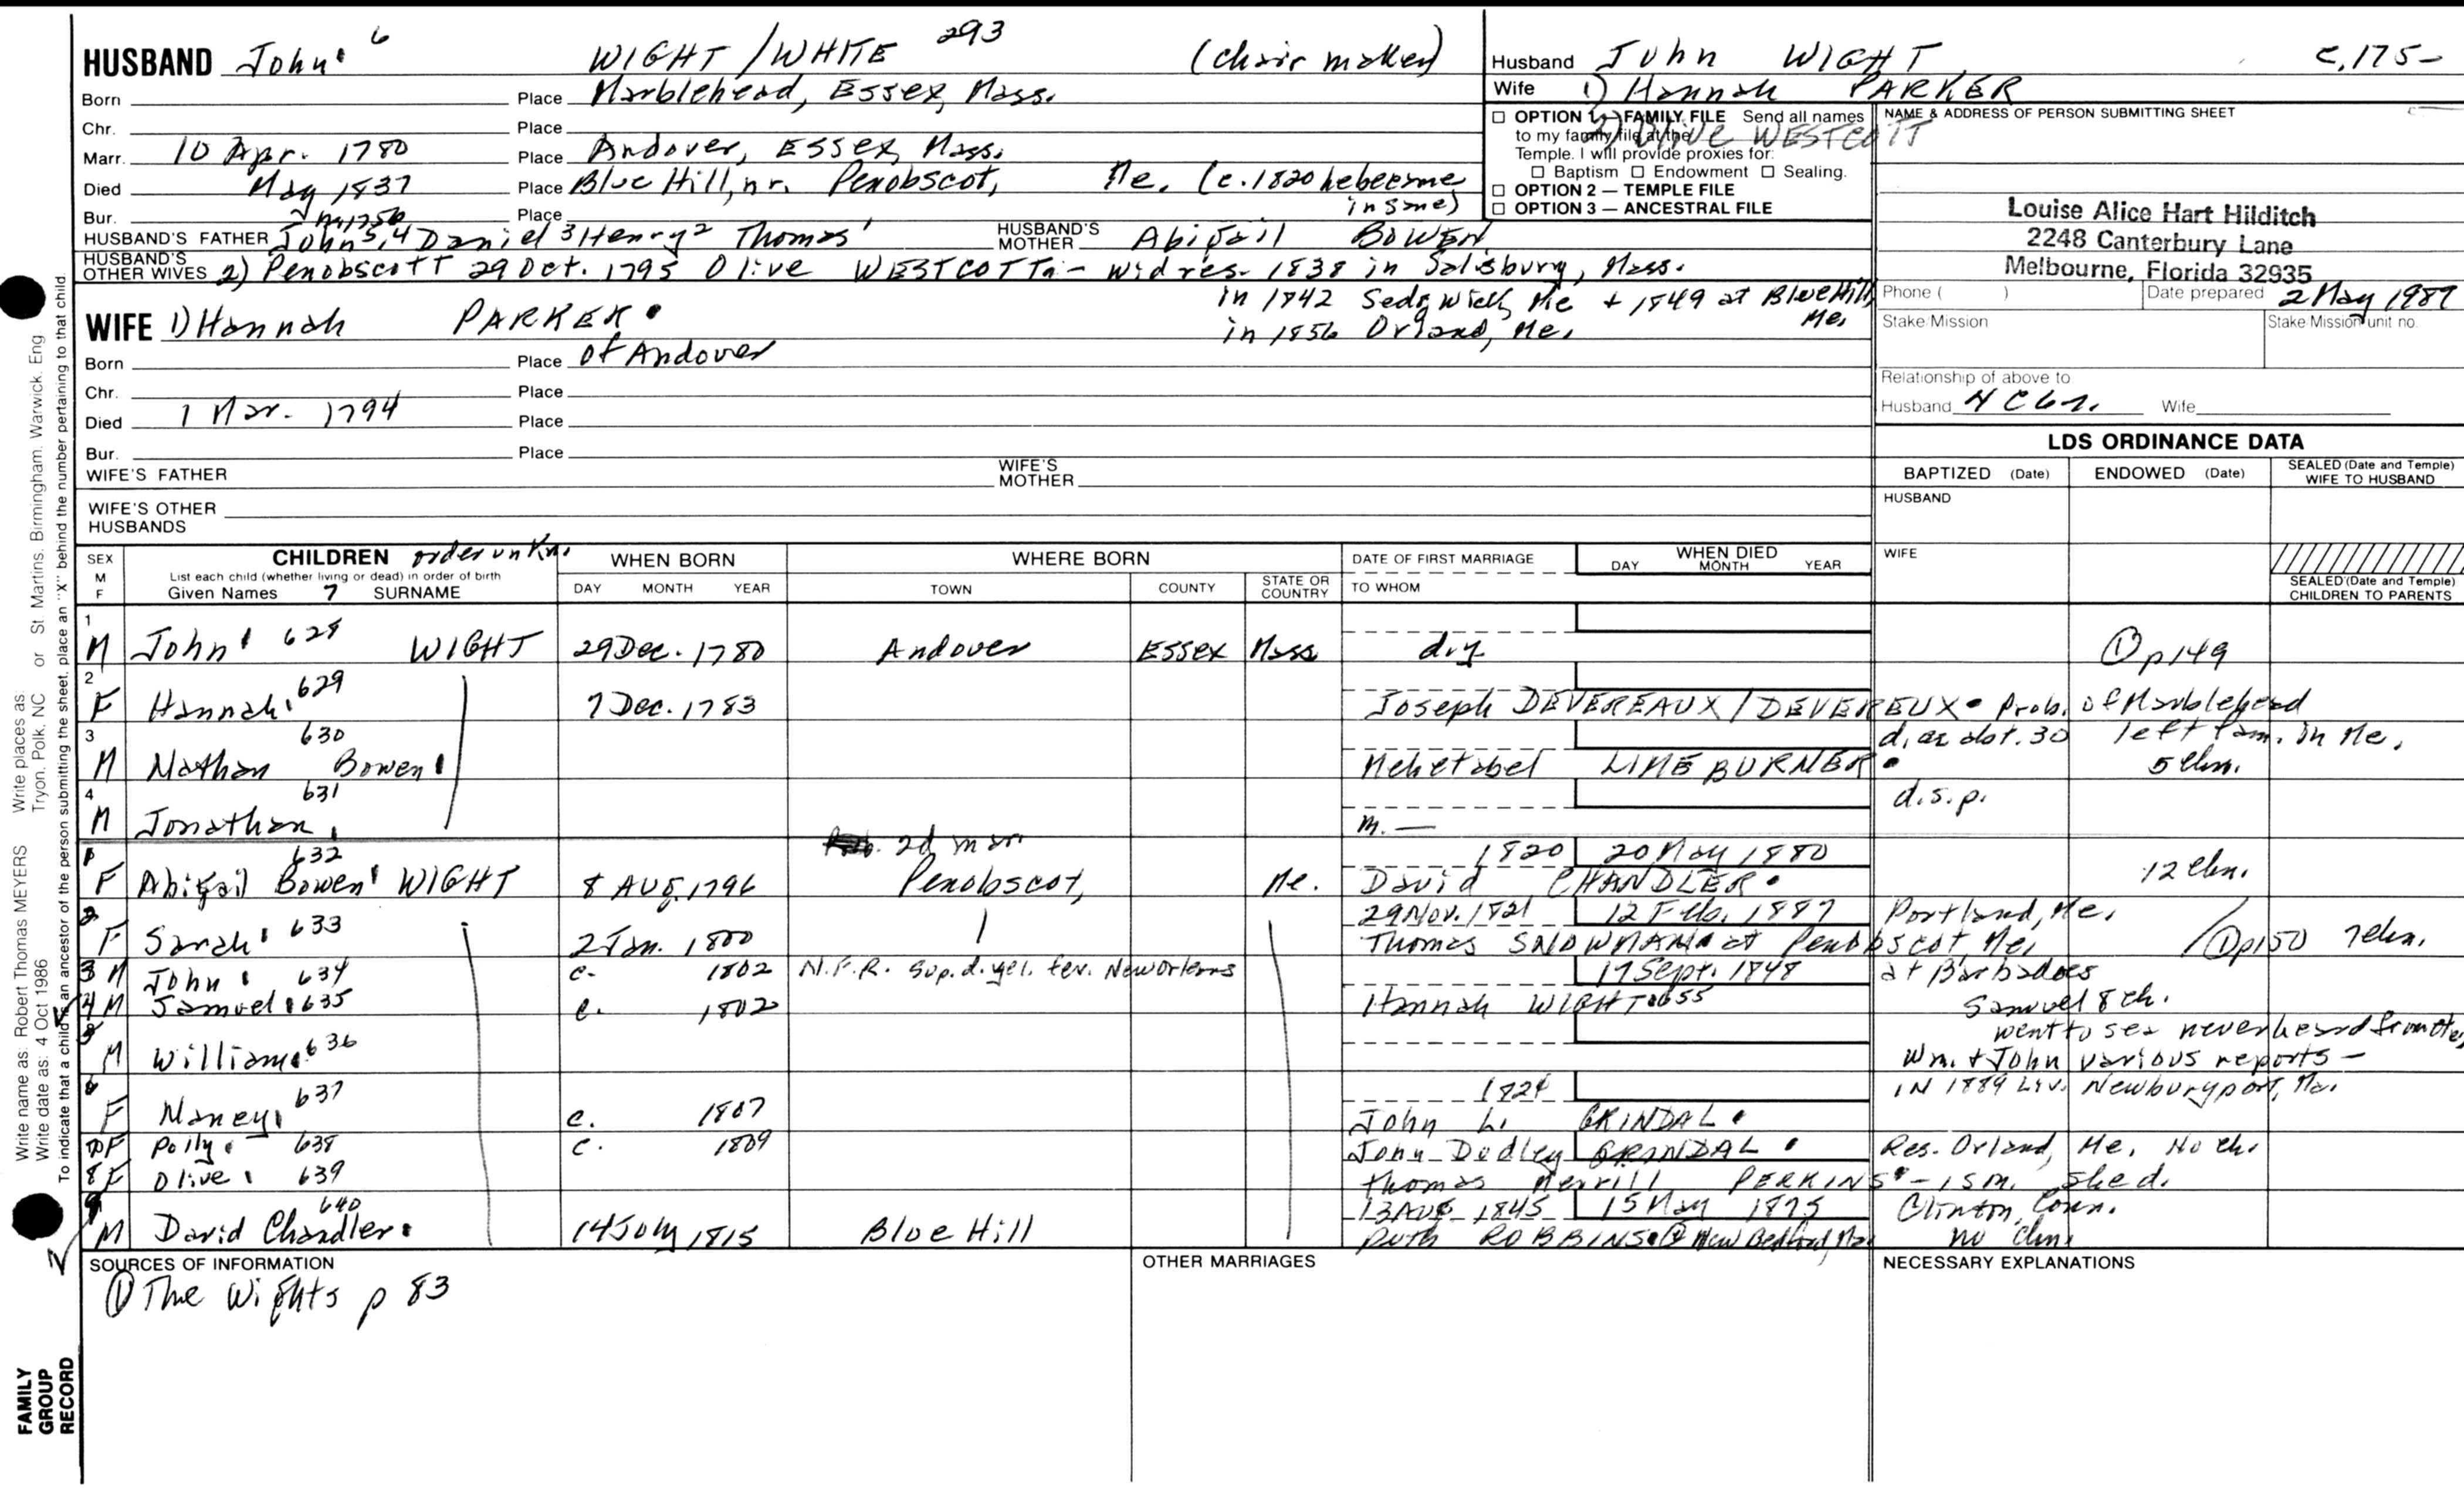 HUSBAND John 6 WIGHT/WHITE 293 (chair maker)
Born Place Marblehead, Essex, Mass.
Chr. Place
Marr. 10 Apr. 1780 Place Andover, Essex, Mass.
Died May 1837 Place Blue Hill, nr. Penobscot, Me. (c. 1820 he became insane)
Bur. Place
HUSBAND'S FATHER John 5, 4 Daniel 3 Henry 2 Thomas 1 HUSBAND'S MOTHER Abigail BOWEN
HUSBAND'S OTHER WIVES 2) Penobscott 29 Oct. 1795 Olive WESTCOTT - wid res. 1838 in Salisbury, Mass.
in 1842 Sedgwick, Me + 1849 at Blue Hill, Me.
in 1856 Orland, Me.
WIFE 1) Hannah PARKER
Born Place of Andover
Chr. Place
Died 1 Mar. 1794 Place
Bur. Place
WIFE'S FATHER WIFE'S MOTHER
WIFE'S OTHER HUSBANDS
Husband John WIGHT c. 175-
Wife 1) Hannah PARKER
2) Olive WESTCOTT
☐ OPTION 1 — FAMILY FILE Send all names
to my family file at the
Temple. I will provide proxies for:
☐ Baptism ☐ Endowment ☐ Sealing.
☐ OPTION 2 — TEMPLE FILE
☐ OPTION 3 — ANCESTRAL FILE
NAME & ADDRESS OF PERSON SUBMITTING SHEET
Louise Alice Hart Hilditch
2248 Canterbury Lane
Melbourne, Florida 32935
Phone ( ) Date prepared 2 May 1989
Stake/Mission Stake/Mission unit no.
Relationship of above to
Husband Wife
LDS ORDINANCE DATA
BAPTIZED (Date) ENDOWED (Date) SEALED (Date and Temple) WIFE TO HUSBAND
HUSBAND
WIFE
SEALED (Date and Temple) CHILDREN TO PARENTS
SEX M F
CHILDREN order unkn.
List each child (whether living or dead) in order of birth
Given Names 7 SURNAME
WHEN BORN DAY MONTH YEAR
WHERE BORN TOWN COUNTY STATE OR COUNTRY
DATE OF FIRST MARRIAGE TO WHOM
WHEN DIED DAY MONTH YEAR
1 M John 628 WIGHT 29 Dec. 1780 Andover Essex Mass d.y. ① p149
2 F Hannah 629 7 Dec. 1783 Joseph DEVEREAUX/DEVEREUX Prob. of Marblehead
3 M Nathan Bowen 630 Mehetabel LIMEBURNER d. ae abt. 30 left fam. in Me. 5 chn.
4 M Jonathan 631 m. — d.s.p.
2d mar.
1 F Abigail Bowen 632 WIGHT 8 Aug. 1796 Penobscot, Me. 1820 20 May 1880 David CHANDLER 12 chn.
2 F Sarah 633 2 Jan. 1800 29 Nov. 1821 12 Feb. 1887 Portland, Me.
Thomas SNOWMAN at Penobscot, Me. ① p150 7 chn.
3 M John 634 c. 1802 N.F.R. Sup. d. yel. fev. New Orleans
4 M Samuel 635 c. 1802 17 Sept. 1848 at Barbadoes
Hannah WIGHT 655 Samuel 8 ch.
5 M William 636 went to sea never heard from
Wm. + John various reports —
6 F Nancy 637 c. 1807 1824 John L. GRINDAL IN 1889 Liv. Newburyport, Ma.
7 F Polly 638 c. 1809 John Dudley GRINDAL Res. Orland, Me. No ch.
8 F Olive 639 Thomas Merrill PERKINS - 1s m. she d.
9 M David Chandler 640 14 July 1815 Blue Hill 13 Aug 1845 15 May 1875 Clinton, Conn.
Ruth ROBBINS @ New Bedford, Ma no chn
SOURCES OF INFORMATION
① The Wights p 83
OTHER MARRIAGES
NECESSARY EXPLANATIONS
Write name as: Robert Thomas MEYERS Write places as: Tryon, Polk, NC or St Martins, Birmingham, Warwick, Eng
Write date as: 4 Oct 1986
To indicate that a child is an ancestor of the person submitting the sheet, place an "X" behind the number pertaining to that child.
FAMILY GROUP RECORD